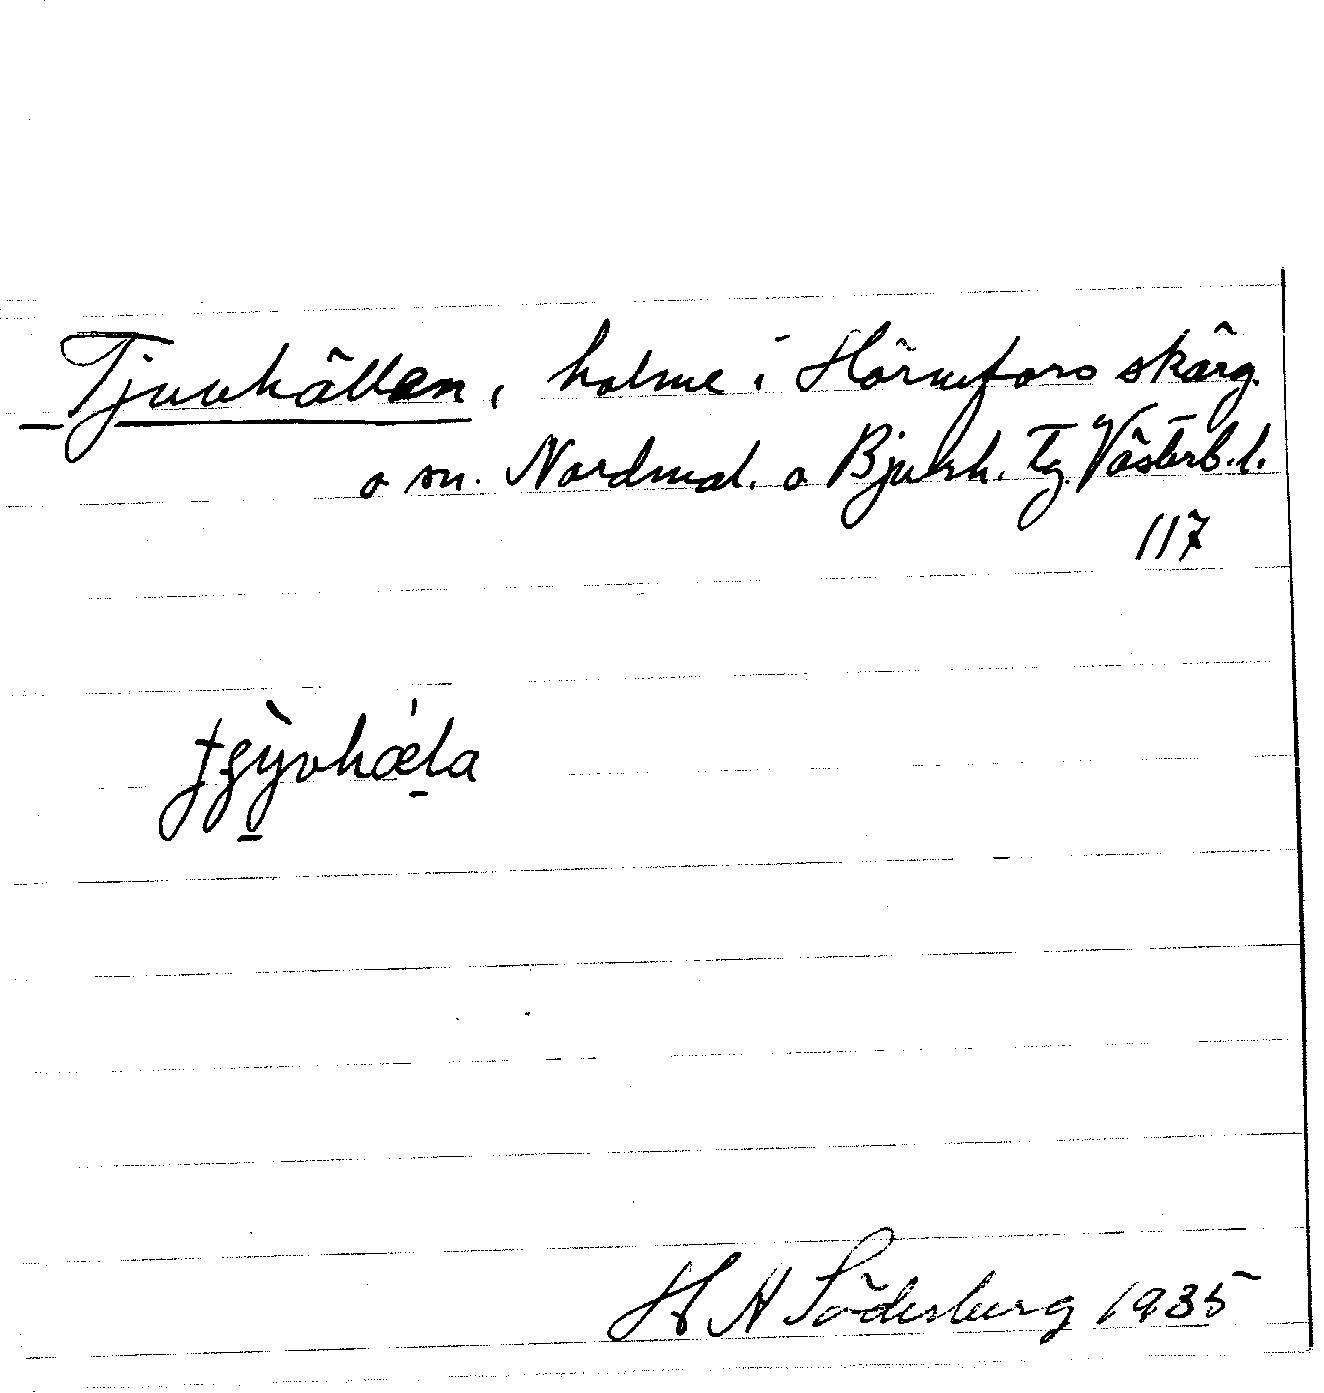 Tjuvhällan, holme i Hörnefors skärg.
o sn. Nordmal. o Bjurh. Tg. Västerb. l.
117
H A Söderberg 1935